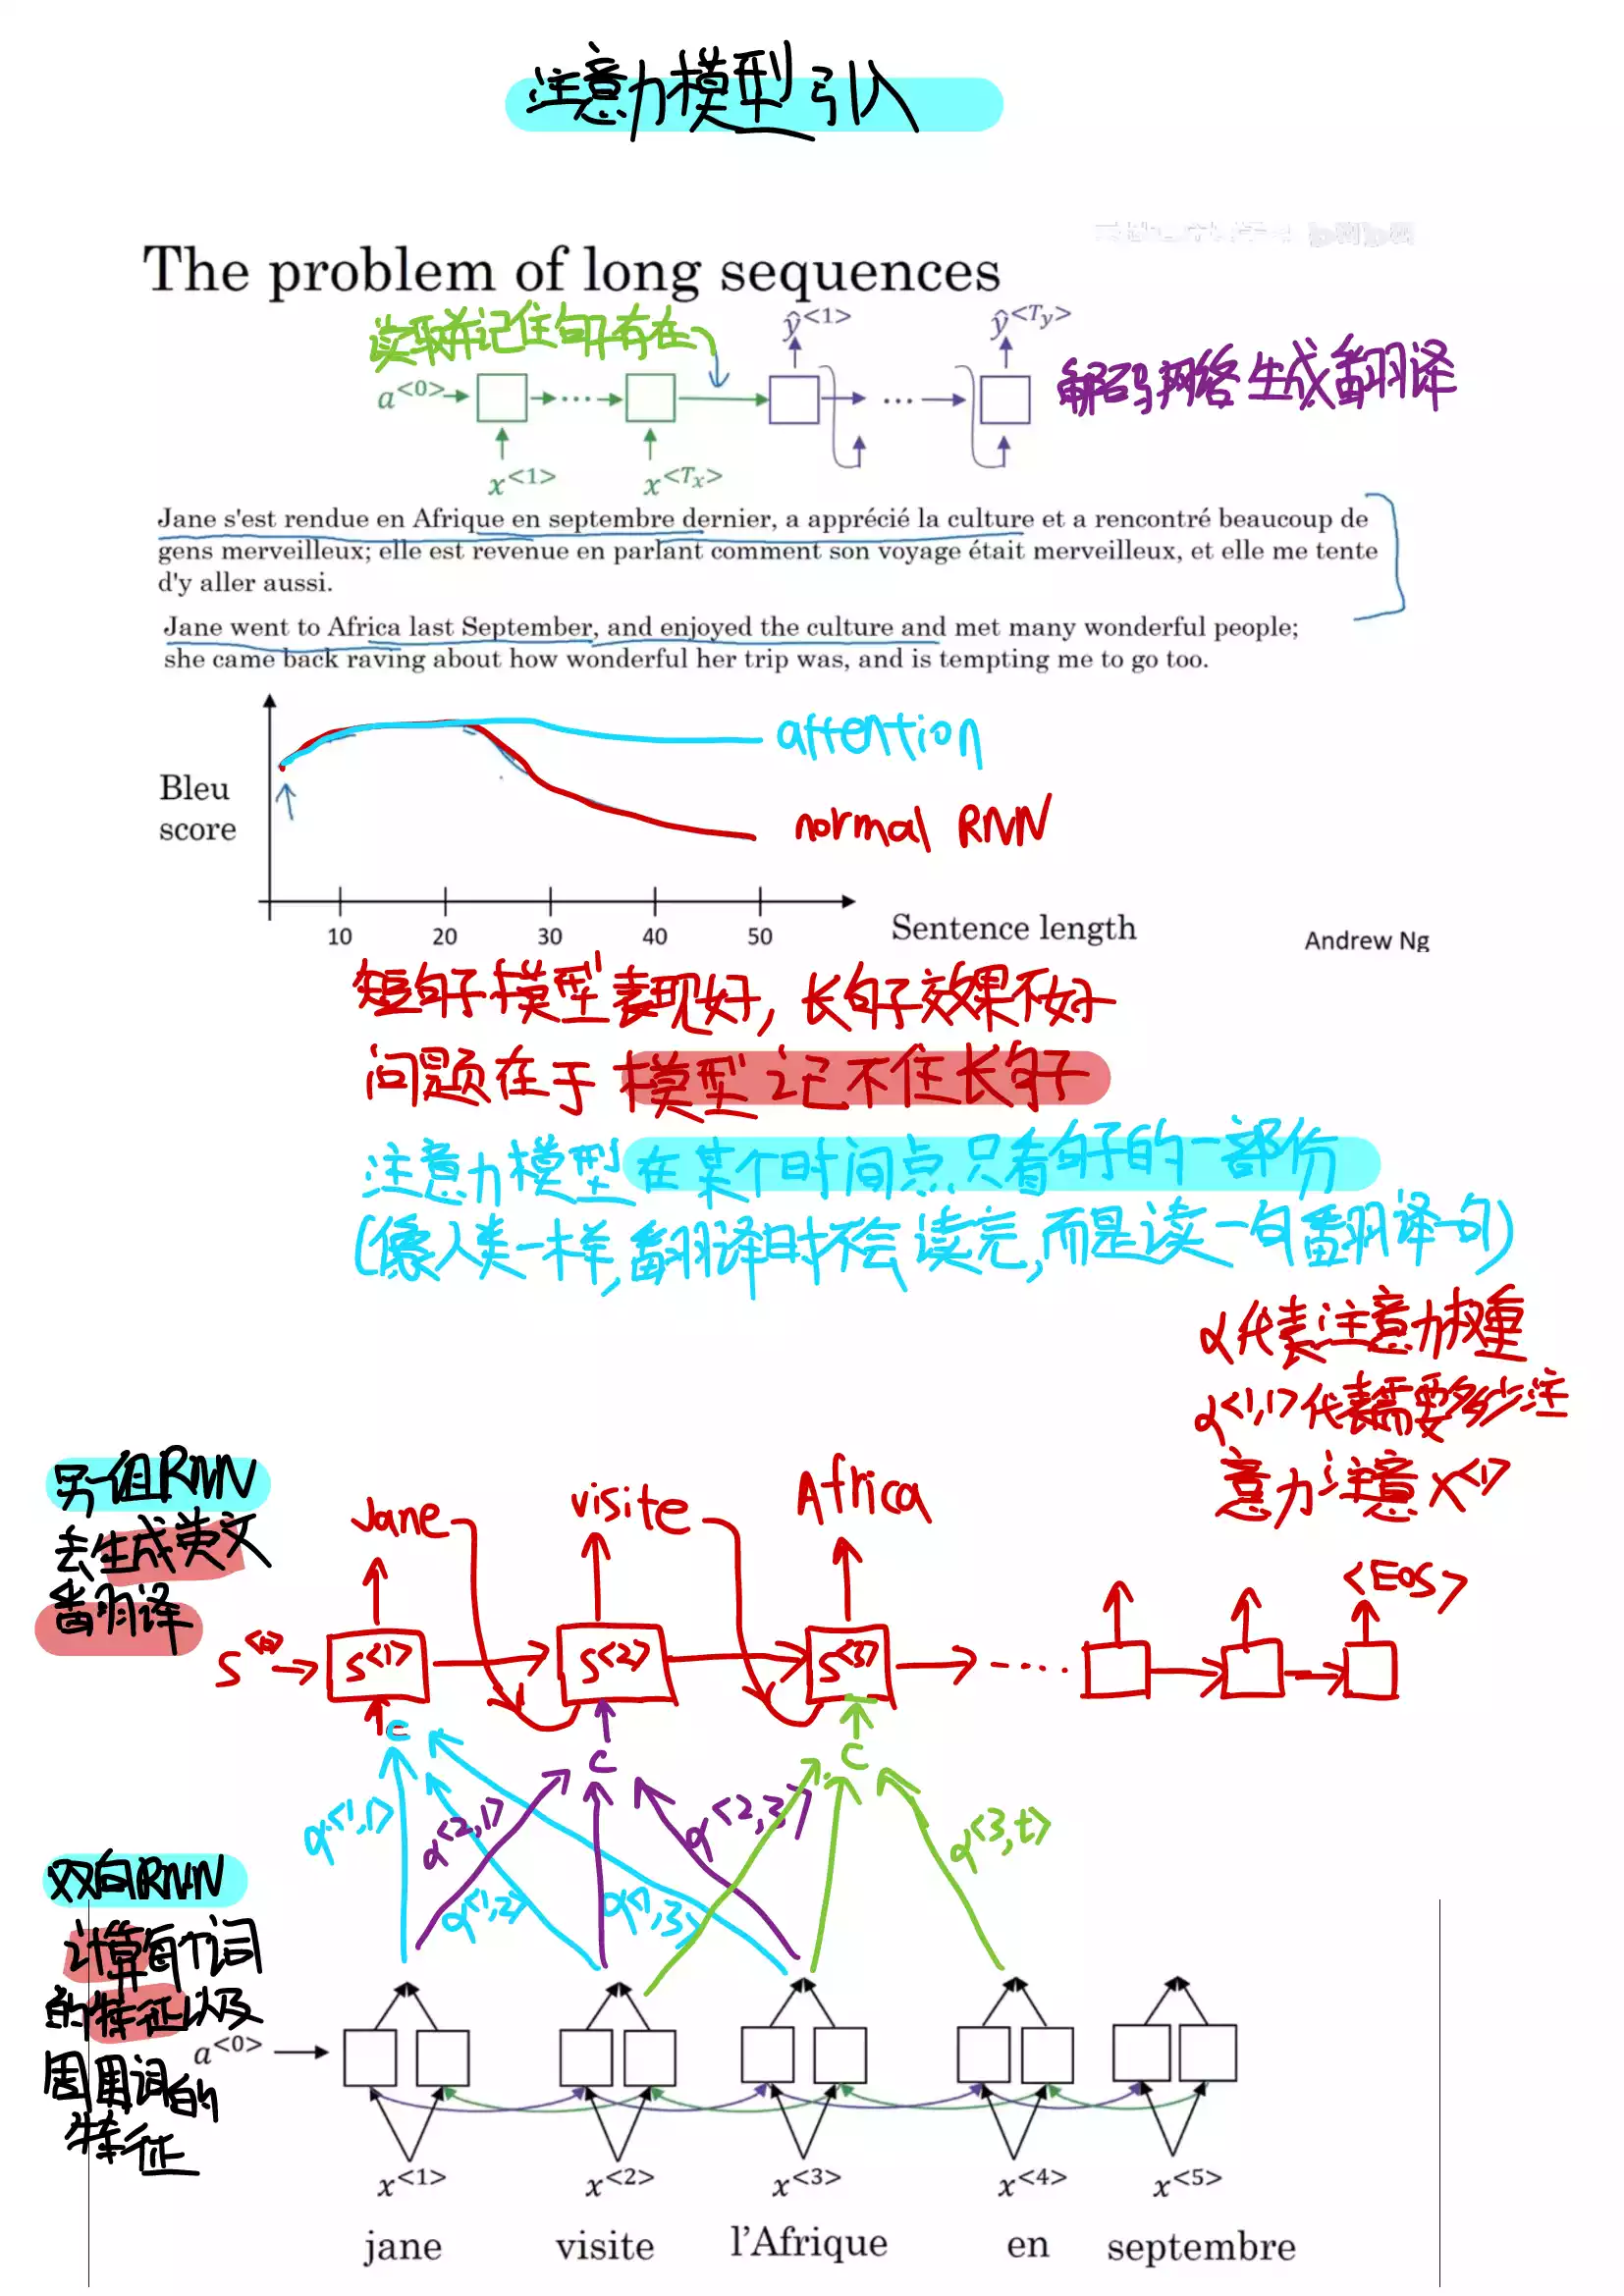 注意力模型引入
The problem of long sequences
读取并记住句子存在
ŷ<1>
ŷ<Ty>
解码网络生成翻译
a<0>
...
...
x<1>
x<Tx>
Jane s'est rendue en Afrique en septembre dernier, a apprécié la culture et a rencontré beaucoup de
gens merveilleux; elle est revenue en parlant comment son voyage était merveilleux, et elle me tente
d'y aller aussi.
Jane went to Africa last September, and enjoyed the culture and met many wonderful people;
she came back raving about how wonderful her trip was, and is tempting me to go too.
attention
Bleu
score
normal RNN
10 20 30 40 50
Sentence length
Andrew Ng
短句子模型表现好, 长句子效果不好
问题在于模型记不住长句子
注意力模型在某个时间点只看句子的一部份
(像人类一样,翻译时不会读完,而是读一句翻译一句)
α代表注意力权重
α<1,1>代表需要多少注
意力注意 x<1>
另一组RNN
去生成英文
翻译
Jane
visite
Africa
<EOS>
S<0>
S<1>
S<2>
S<3>
C
C
C
α<1,1>
α<2,1>
α<2,3>
α<3,t>
α<1,2>
α<1,3>
双向RNN
计算每个词
的特征以及
周围词的
特征
a<0>
x<1> x<2> x<3> x<4> x<5>
jane visite l'Afrique en septembre